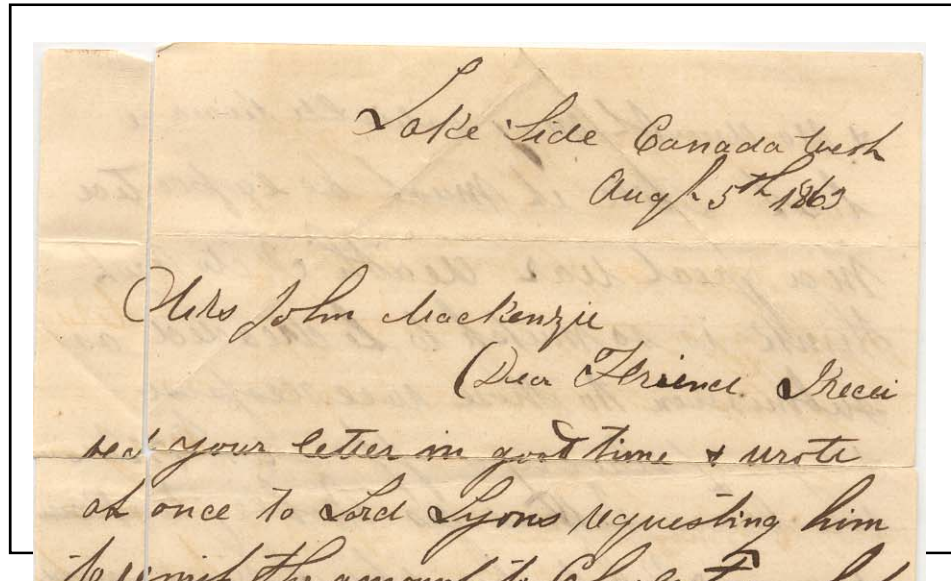 Lake Side Canada West
Augt 5th 1863
Mrs John MacKenzie
Dear Friend. I recei
ved your letter in good time & wrote
at once to Lord Lyons requesting him
to remit the amount to